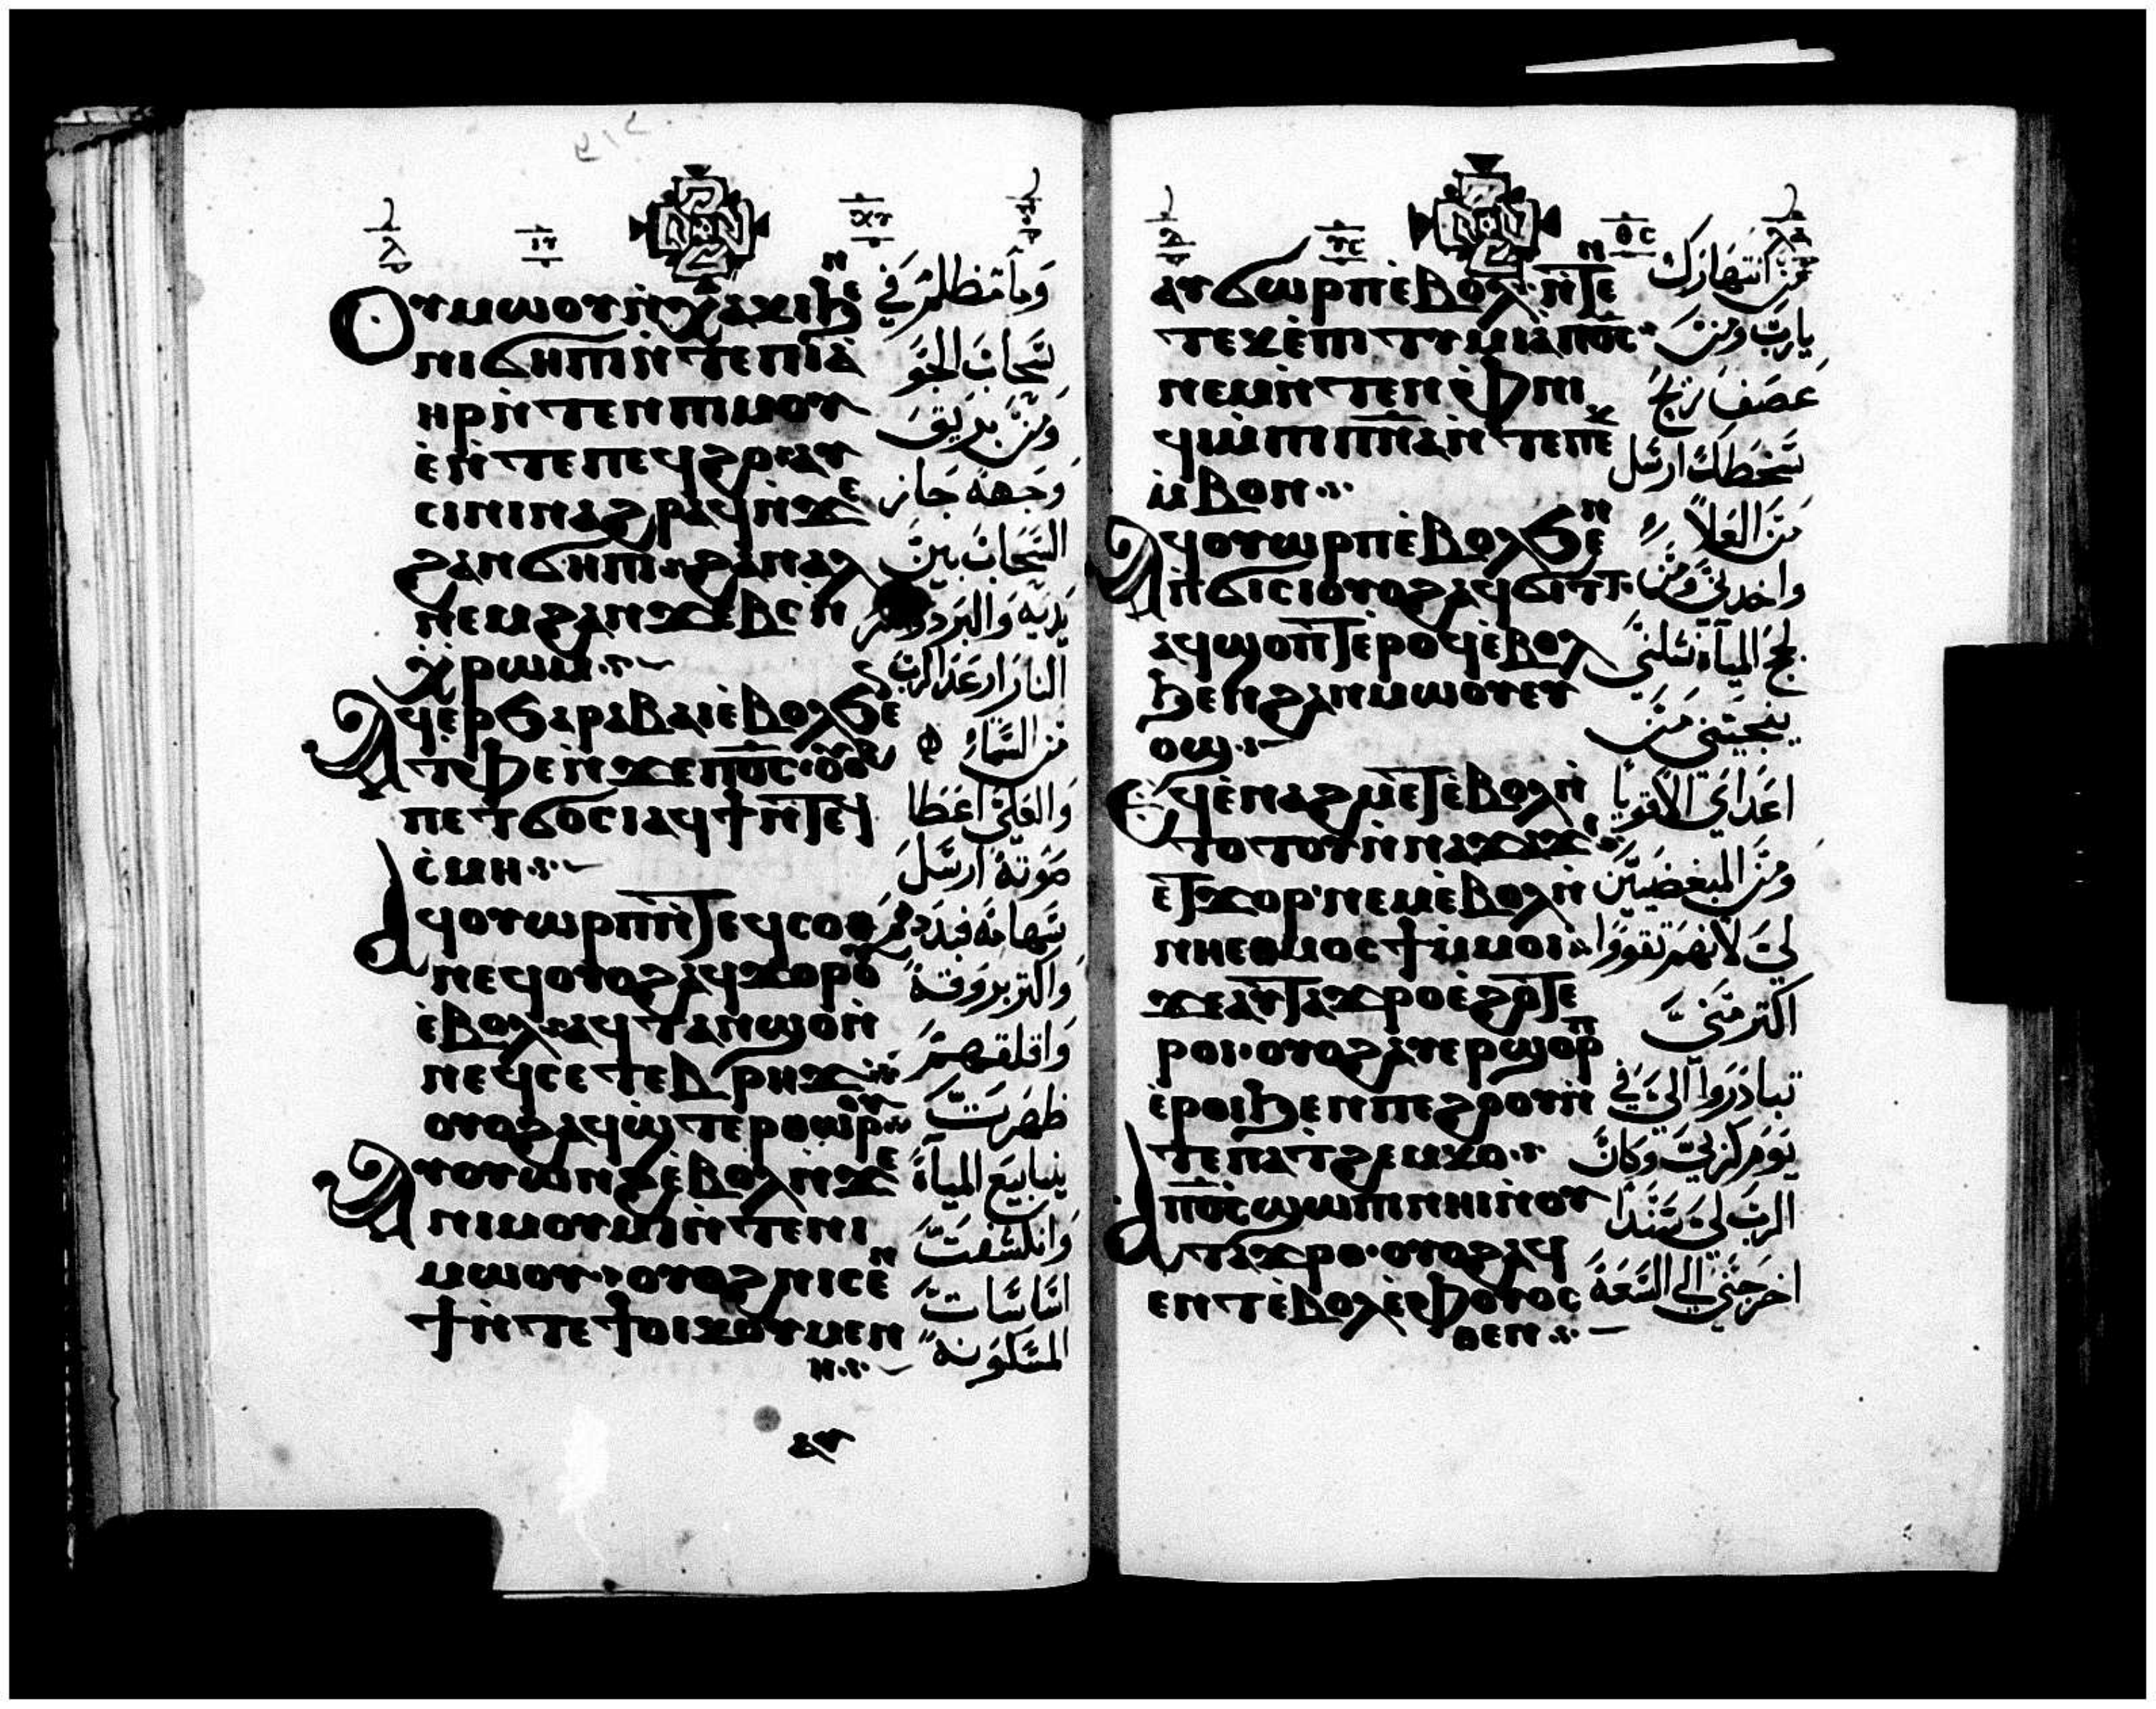 ⲟⲩⲙⲱⲟⲩ ⲛ̀ⲭⲁⲕⲓ ϧⲉⲛ
ⲛⲓϭⲏⲡⲓ ⲛ̀ⲧⲉ ⲡⲓⲁ̀
ⲏⲣ ⲛ̀ⲧⲉⲛ ⲡⲓⲙⲟⲩ
ⲉ̀ ⲛ̀ⲧⲉ ⲡⲉϥϩⲟ ⲁⲩ
ⲥⲓⲛⲓ ⲛⲁϩⲣⲁϥ ⲛ̀ϫⲉ
ϩⲁⲛϭⲏⲡⲓ ϩⲁⲛⲁⲗ
ⲛⲉⲙ ϩⲁⲛϫⲉⲃⲥ ⲛ̀
ⲭⲣⲱⲙ
ⲁϥⲉⲣϧⲁⲣⲁⲃⲁⲓ ⲉ̀ⲃⲟⲗ ϧⲉ
ⲧⲫⲉ ⲛ̀ϫⲉ ⲡ̅ⲟ̅ⲥ̅ ⲟⲩⲟϩ
ⲡⲉⲧϭⲟⲥⲓ ⲁϥϯ ⲛ̀ⲧⲉϥ
ⲥ̀ⲙⲏ
ⲁϥⲟⲩⲱⲣⲡ ⲛ̀ⲧⲉϥⲥⲟⲑ
ⲛⲉϥ ⲟⲩⲟϩ ⲁϥϫⲟⲣⲟⲩ
ⲉ̀ⲃⲟⲗ ⲁϥⲧⲁⲛϣⲟ ⲛ̀
ⲛⲉϥⲥⲉⲧⲉⲃⲣⲏϫ
ⲟⲩⲟϩ ⲁϥϣ̀ⲧⲉⲣⲑⲱⲣⲟⲩ
ⲁⲩⲟⲩⲱⲛϩ ⲉ̀ⲃⲟⲗ ⲛ̀ϫⲉ
ⲛⲓⲙⲟⲩⲙⲓ ⲛ̀ⲧⲉ ⲛⲓ
ⲙⲱⲟⲩ ⲟⲩⲟϩ ⲛⲓⲥⲉⲛ
ϯ ⲛ̀ⲧⲉ ϯⲟⲓⲕⲟⲩⲙⲉⲛ
ⲏ
وما مظلم في
سحاب الجو
ومن بريق
وجهه جاز
السحاب بين
يديه والبرد وجمر
النار ارعد الرب
من السماء
والعلي اعطا
صوته ارسل
سهامه فبددهم
واكثر بروقه
واقلقهم
ظهرت
ينابيع المياه
وانكشفت
اساسات
المسكونة
ⲁⲩϭⲱⲣⲡ ⲉ̀ⲃⲟⲗ ϧⲉⲛ
ⲧⲉⲕⲉ̀ⲡⲓⲧⲩⲙⲓⲁ̀ ⲡ̅ⲟ̅ⲥ̅
ⲛⲉⲙ ⲛ̀ⲧⲉⲛ ⲡ̀ϫⲓⲛ
ϥⲓ ⲙ̀ⲡⲓⲡ̅ⲛ̅ⲁ̅ ⲛ̀ⲧⲉ ⲡⲉⲕ
ⲙ̀ⲃⲟⲛ
ⲁϥⲟⲩⲱⲣⲡ ⲉ̀ⲃⲟⲗ ϧⲉⲛ
ⲡ̀ϭⲓⲥⲓ ⲟⲩⲟϩ ⲁϥϭⲓⲧⲧ
ⲁϥϣⲟⲡⲧ ⲉⲣⲟϥ ⲉ̀ⲃⲟⲗ
ϧⲉⲛ ϩⲁⲛⲙⲱⲟⲩ ⲉⲩ
ⲟϣ
ⲉϥⲉ̀ⲛⲁϩⲙⲉⲧ ⲉ̀ⲃⲟⲗ ⲛ̀
ⲧⲟⲧⲟⲩ ⲛ̀ⲛⲁϫⲁϫⲓ
ⲉⲧϫⲟⲣ ⲛⲉⲙ ⲉ̀ⲃⲟⲗ ⲛ̀
ⲛⲏⲉⲑⲙⲟⲥϯ ⲙ̀ⲙⲟⲓ
ϫⲉ ⲁⲩⲧⲁϫⲣⲟ ⲉ̀ϩⲟⲧⲉ
ⲣⲟⲓ ⲟⲩⲟϩ ⲁⲩⲉⲣϣⲟⲣⲡ
ⲉ̀ⲣⲟⲓ ϧⲉⲛ ⲡⲉϩⲟⲟⲩ ⲛ̀
ⲧⲉ ⲡⲁⲧϩⲉⲙⲕⲟ
ⲁ ⲡ̅ⲟ̅ⲥ̅ ϣⲱⲡⲓ ⲛⲏⲓ ⲛ̀ⲟⲩ
ⲧⲁϫⲣⲟ ⲟⲩⲟϩ ⲁϥ
ⲉⲛⲧ ⲉ̀ⲃⲟⲗ ⲉⲩⲟⲩⲟⲥ
ⲑⲉⲛ
من انتهارك
يارب ومن
عصف ريح
سخطك ارسل
من العلا
واخدني ومن
لجج المياه نشلني
ينجيني من
اعداي الاقويا
ومن المبغضين
لي لانهم تقووا
اكثر مني
تبادروا الي في
يوم كربي وكان
الرب لي سندا
اخرجني الي السعة